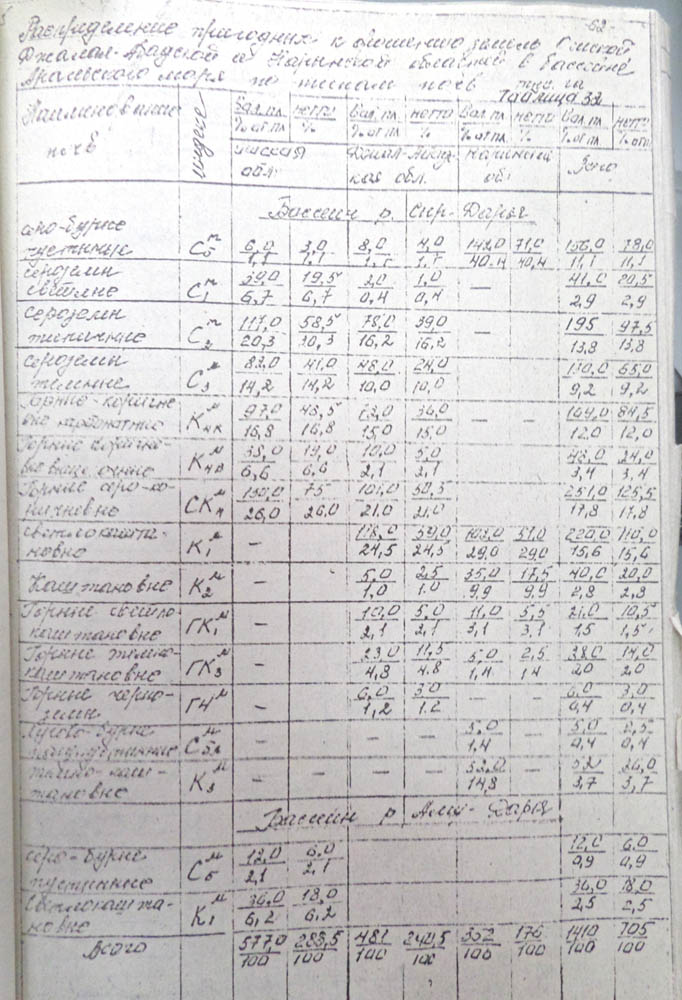 -62-
Распределение пригодных к орошению земель Ошской
Джалал-Абадской и Нарынской областей в бассейне
Аральского моря по типам почв тыс. га
Таблица 33
Наименование почв | индекс | Вал.пл % от пл | нетто % | Вал. пл % от пл | нетто % | Вал пл % от пл | нетто % | Вал. пл % от пл | нетто % от п
Ошская обл. | Джалал-Абадская обл. | Нарынская об. | Всего
Бассейн р. Сыр-Дарья
серо-бурые пустынные | С5п | 6,0 1,1 | 3,0 1,1 | 8,0 1,1 | 4,0 1,1 | 142,0 40,4 | 71,0 40,4 | 156,0 11,1 | 78,0 11,1
сероземы светлые | С1п | 39,0 6,7 | 19,5 6,7 | 2,0 0,4 | 1,0 0,4 | — | | 41,0 2,9 | 20,5 2,9
сероземы типичные | С2п | 117,0 20,3 | 58,5 20,3 | 78,0 16,2 | 39,0 16,2 | — | — | 195 13,8 | 97,5 13,8
сероземы темные | С3м | 82,0 14,2 | 41,0 14,2 | 48,0 10,0 | 24,0 10,0 | — | — | 130,0 9,2 | 65,0 9,2
Горно-коричневые карбонатные | К4К м | 97,0 16,8 | 48,5 16,8 | 72,0 15,0 | 36,0 15,0 | — | — | 169,0 12,0 | 84,5 12,0
Горные коричневые | К4В м | 38,0 6,6 | 19,0 6,6 | 10,0 2,1 | 5,0 2,1 | — | — | 48,0 3,4 | 24,0 3,4
Горные серо-коричневые | СК4 м | 150,0 26,0 | 75 26,0 | 101,0 21,0 | 50,5 21,0 | — | — | 251,0 17,8 | 125,5 17,8
светлокаштановые | К1м | — | | 118,0 24,5 | 59,0 24,5 | 102,0 29,0 | 51,0 29,0 | 220,0 15,6 | 110,0 15,6
Каштановые | К2м | — | | 5,0 1,0 | 2,5 1.0 | 35,0 9,9 | 17,5 9,9 | 40,0 2,8 | 20,0 2,8
Горные светло-каштановые | ГК1м | — | — | 10,0 2,1 | 5,0 2,1 | 11,0 3,1 | 5,5 3,1 | 21,0 1,5 | 10,5 1,5
Горные темно-каштановые | ГК3м | — | — | 23,0 4,8 | 11,5 4.8 | 5,0 1,4 | 2,5 1.4 | 28,0 2,0 | 14,0 2,0
Горные черноземы | ГЧм | — | — | 6,0 1,2 | 3,0 1.2 | — | — | 6,0 0,4 | 3,0 0,4
Лугово-бурые | С5л м | — | — | — | — | 5,0 1.4 | | 5,0 0,4 | 2,5 0,4
темно-каштановые | К3м | — | — | — | — | 52,0 14,8 | | 52 3,7 | 26,0 3,7
Бассейн р Аму-Дарья
серо-бурые пустынные | С5м | 12,0 2,1 | 6,0 2,1 | 12,0 0,9 | 6,0 0,9
Светлокаштановые | К1м | 36,0 6,2 | 18,0 6,2 | 36,0 2,5 | 18,0 2,5
Всего | 577,0 100 | 288,5 100 | 481 100 | 240,5 100 | 352 100 | 176 100 | 1410 100 | 705 100